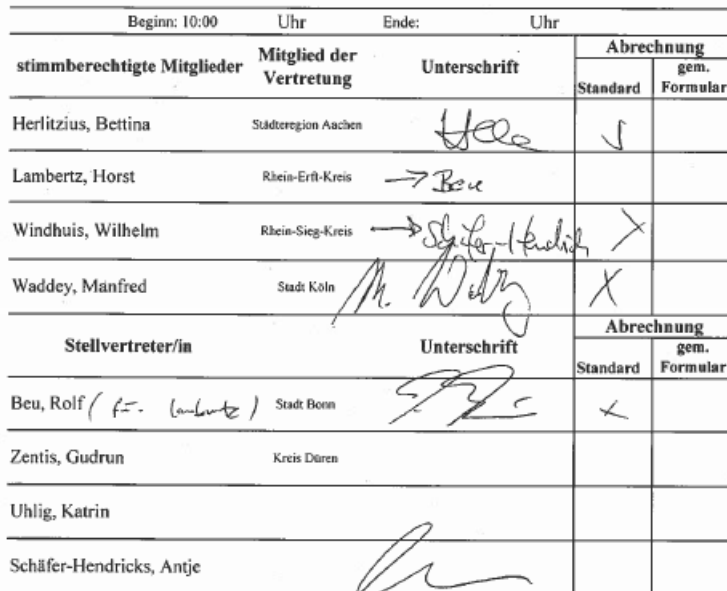 Beginn: 10:00 Uhr Ende: Uhr
stimmberechtigte Mitglieder Mitglied der Vertretung Unterschrift Abrechnung
Standard gem. Formular
Herlitzius, Bettina Städteregion Aachen
Lambertz, Horst Rhein-Erft-Kreis → Beu
Windhuis, Wilhelm Rhein-Sieg-Kreis → Schäfer-Hendricks X
Waddey, Manfred Stadt Köln M. Waddey X
Stellvertreter/in Unterschrift Abrechnung
Standard gem. Formular
Beu, Rolf (für Lambertz) Stadt Bonn X
Zentis, Gudrun Kreis Düren
Uhlig, Katrin
Schäfer-Hendricks, Antje